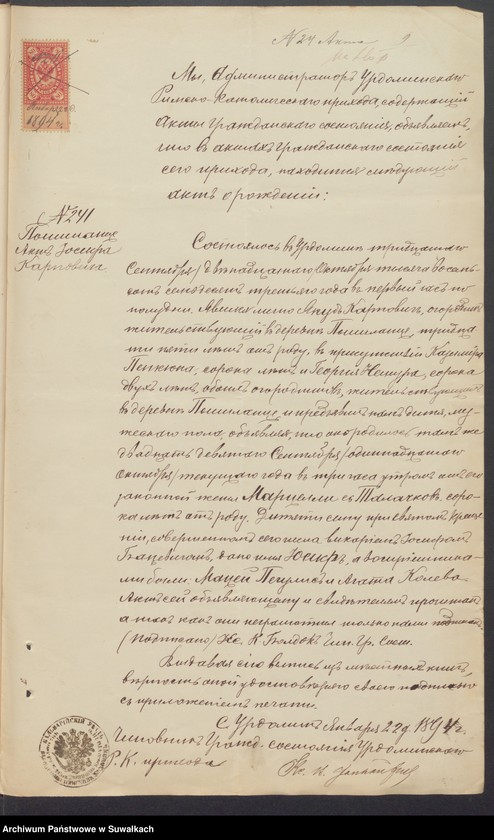 N 24 Акта 9
Января
1894 г.
Мы, Администраторъ Урдоминскаго
Римско-Католическаго прихода, содержащій
Акты Гражданскаго состоянія, объявляемъ,
что въ актахъ Гражданскаго состоянія
сего прихода, находится слѣдующій
актъ о рожденіи:
N 241
Актъ Іосифа
Карповича
Состоялось въ Урдоминѣ тридцатаго
Сентября /двѣнадцатаго Октября тысяча восемь-
сотъ семьдесятъ третьяго года въ первый часъ по
полудни. Явился лично Якубъ Карповичъ, огородникъ
жительствующій въ деревнѣ
ти пяти лѣтъ отъ роду, въ присутствіи Казиміра
сорока лѣтъ и Георгія сорока
двухъ лѣтъ, обоихъ огородниковъ, жительствующихъ
въ деревнѣ и предъявилъ намъ дитя, му-
жескаго пола, объявляя, что оно родилось тамъ же
двадцать девятаго Сентября /одиннадцатаго
Октября/ текущаго года въ три часа утромъ отъ его
законной жены Марцеллы съ соро-
ка лѣтъ отъ роду. Дитяти сему при святомъ Креще-
ніи, совершенномъ сего числа викаріемъ Іосифомъ
дано имя Іосифъ, а воспріемника-
ми были: Мацей и Агата
Актъ сей объявляющему и свидѣтелямъ прочитанъ
а такъ какъ они неграмотны только нами подписанъ
/подписано/ Кс. Чин. Гр. Сост.
Выдавая сію выпись изъ метической книги,
вѣрность оной удостовѣряю своею подписью
съ приложеніемъ печати.
С. Урдоминъ Января 22 д. 1894 г.
Чиновникъ Гражд. состоянія Урдоминскаго
Р. К. прихода
Кс.
Archiwum Państwowe w Suwałkach